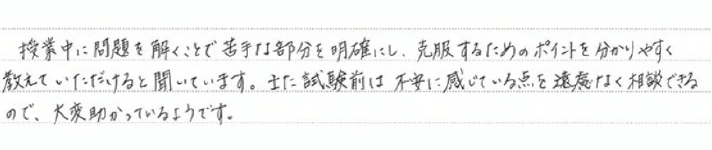 授業中に問題を解くことで苦手な部分を明確にし、克服するためのポイントを分かりやすく
教えていただけると聞いています。また試験前は不安に感じている点を遠慮なく相談できる
ので、大変助かっているようです。